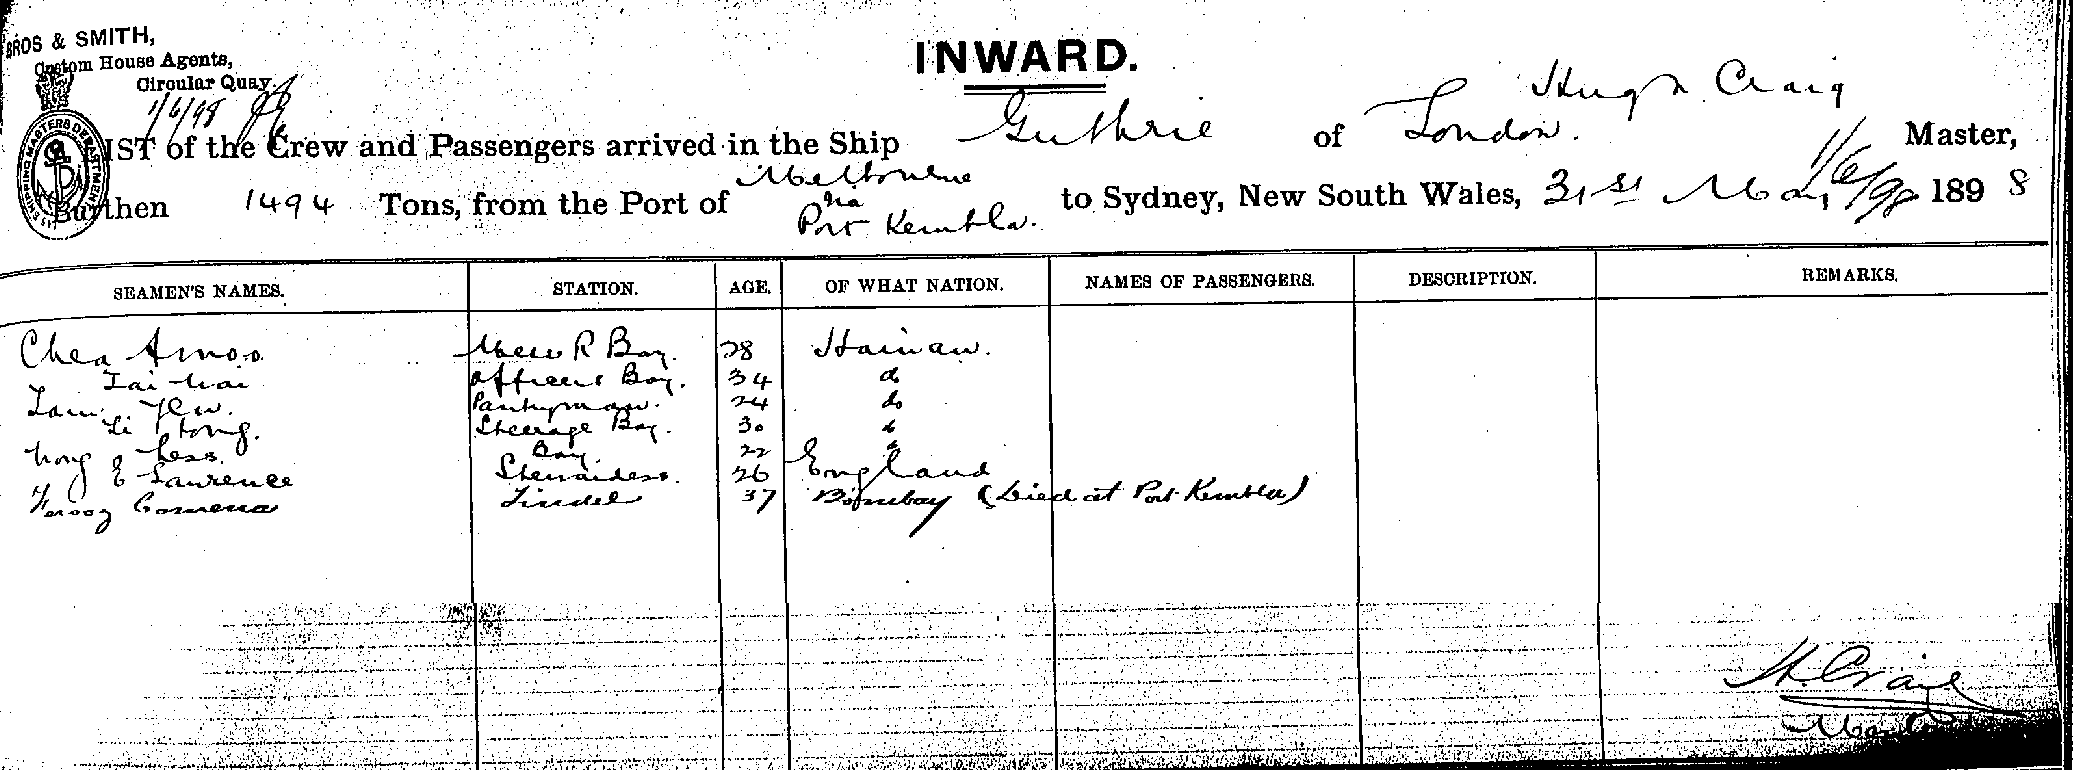 BROS & SMITH,
Custom House Agents,
Circular Quay.
1/6/98
INWARD.
Hugh Craig
LIST of the Crew and Passengers arrived in the Ship Guthrie of London. Master,
1/6/98
Burthen 1494 Tons, from the Port of Melbourne via Port Kembla. to Sydney, New South Wales, 31st May 1898
SHIPPING MASTERS DEPARTMENT
SEAMEN'S NAMES. STATION. AGE. OF WHAT NATION. NAMES OF PASSENGERS. DESCRIPTION. REMARKS.
Chea Amoo Mess R Boy. 28 Hainan.
Officers Boy. 34 do
Pantryman. 24 do
Steerage Boy. 30 do
Boy. 22 do
E Laurence Stewardess. 26 England
Tindel 37 Bombay (Died at Port Kembla)
H. Craig
Master